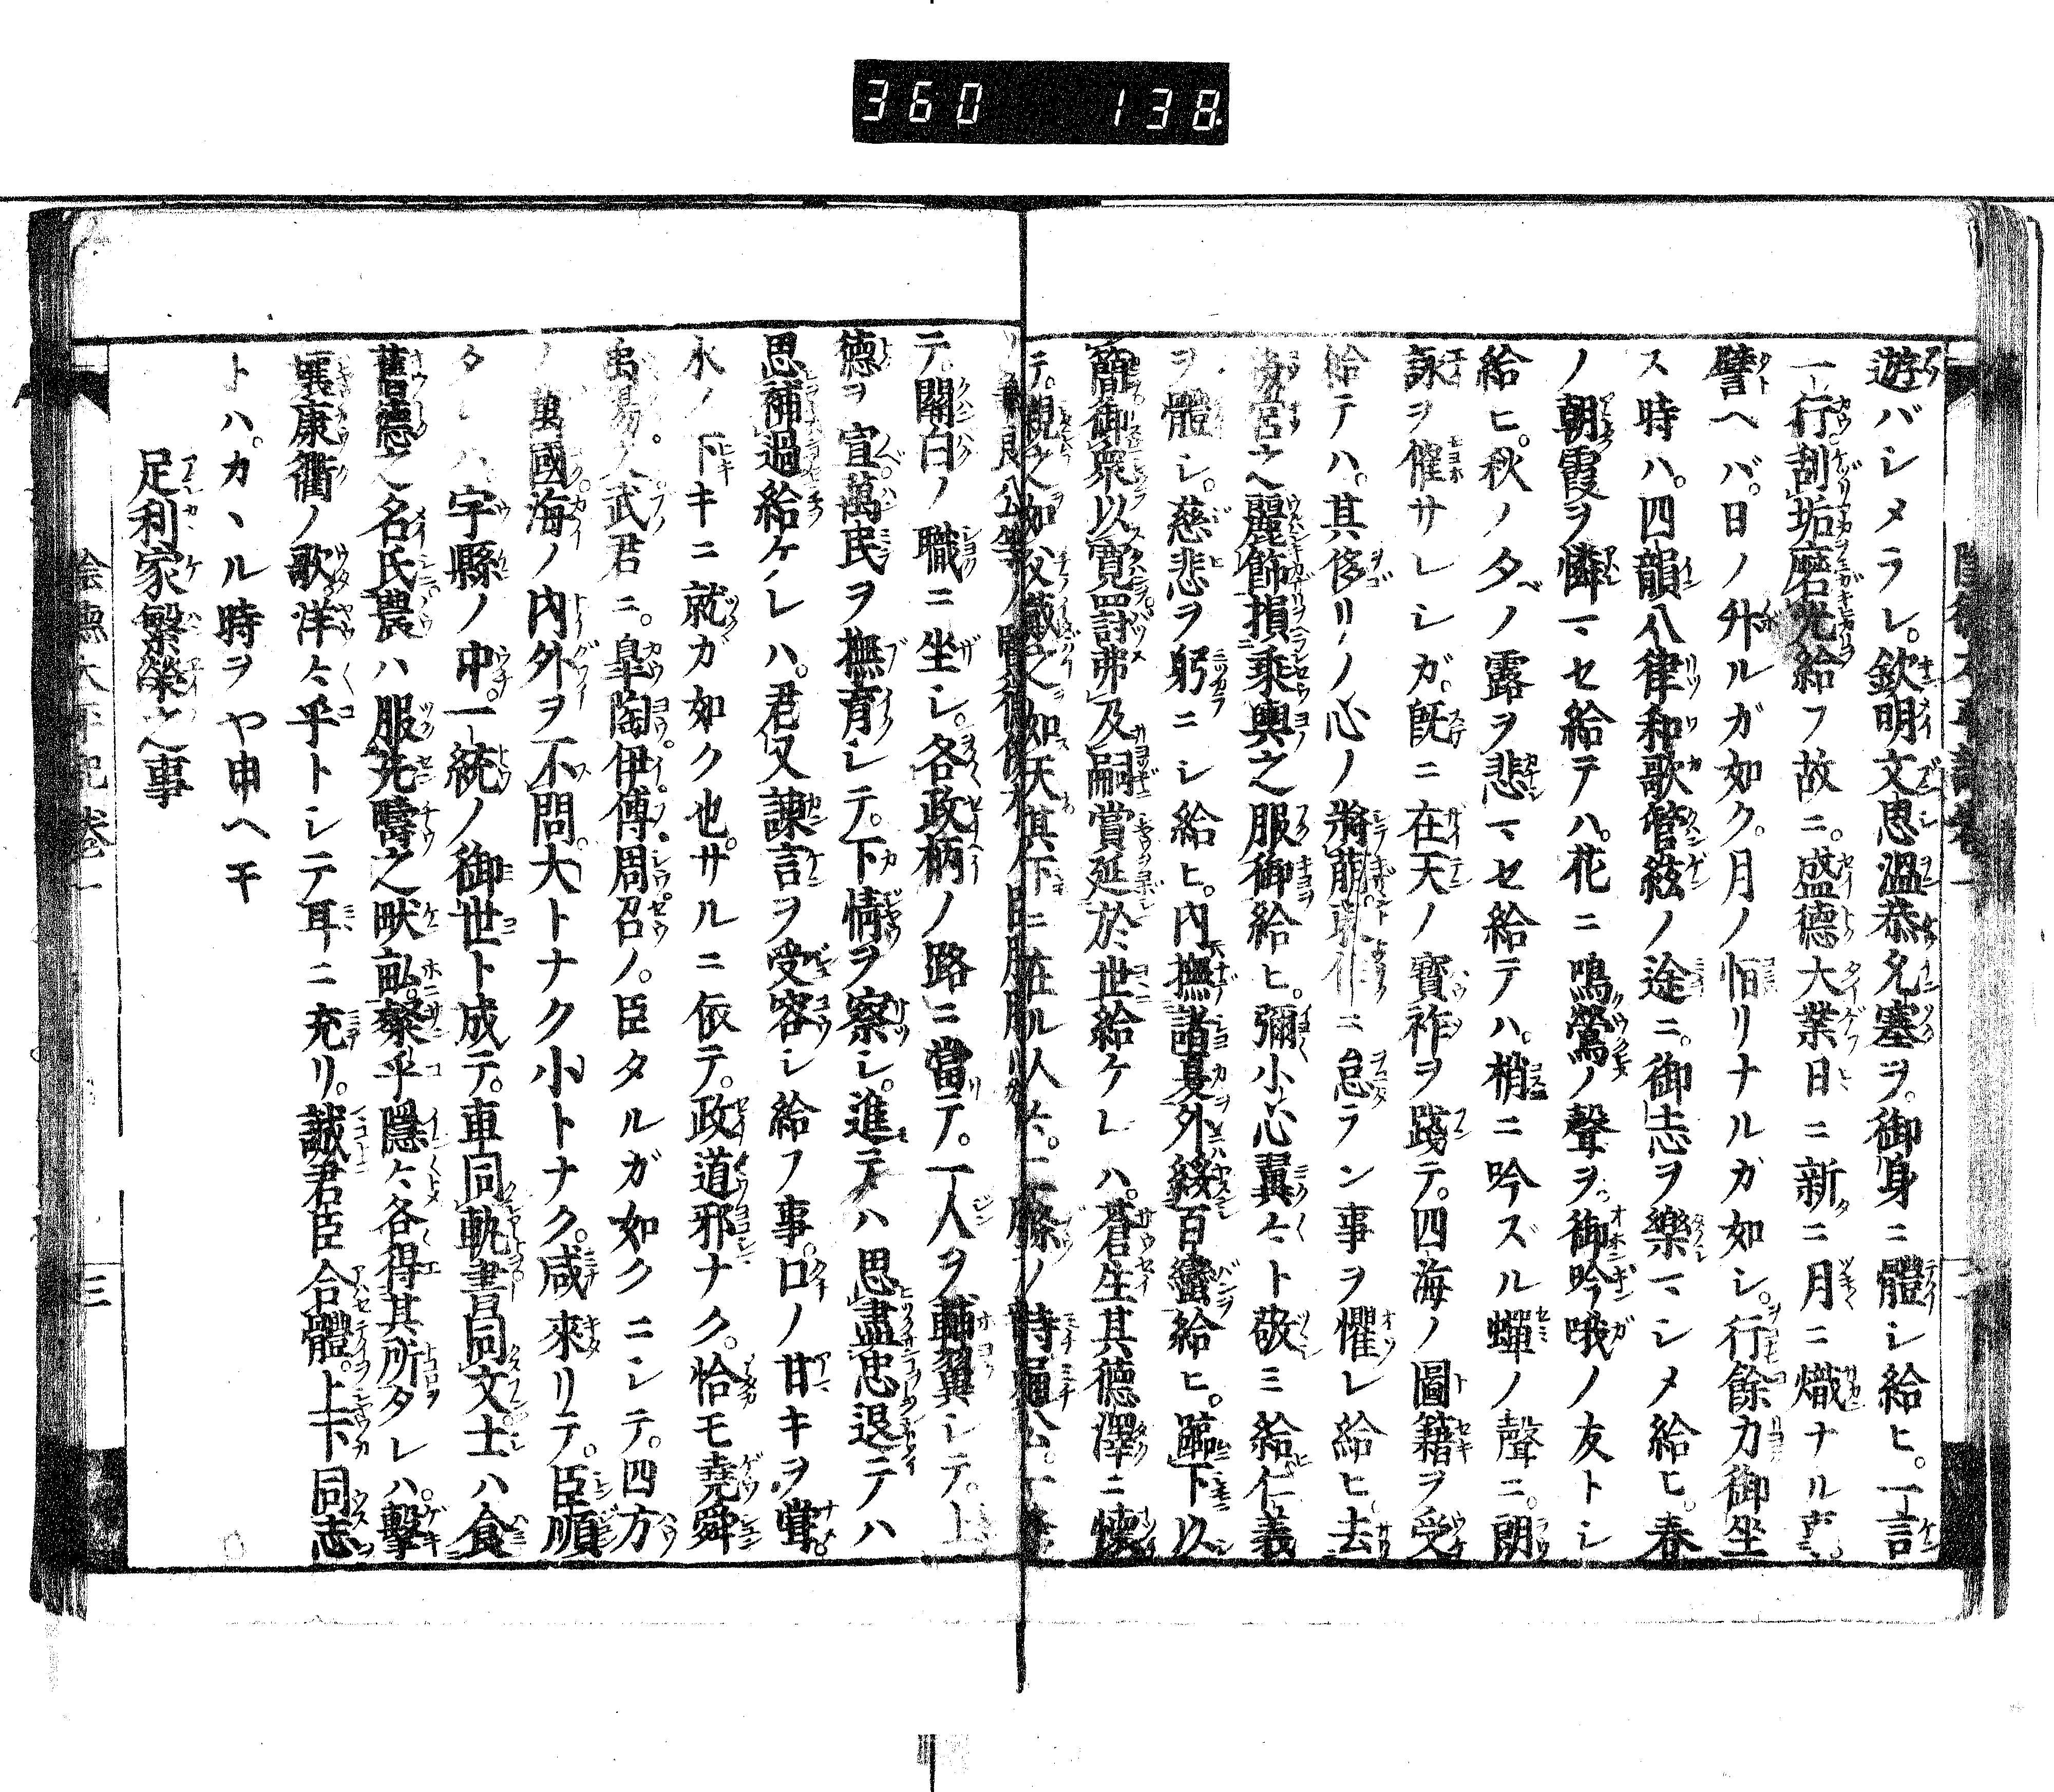 360 138
遊バシメラレ。欽明文思溫恭允塞ヲ。御身ニ體シ給ヒ。一言
一行刮垢磨光給フ故ニ。盛德大業日ニ新ニ月ニ熾ナル事。
譬ヘバ。日ノ外ルガ如ク。月ノ恒リナルガ如シ。行餘力御坐
ス時ハ。四韻八律和歌管絃ノ途ニ。御志ヲ樂マシメ給ヒ。春
ノ朝霞ヲ憐マセ給テハ。花ニ鳴鶯ノ聲ヲ。御吟哦ノ友トシ
給ヒ。秋ノ夕ノ露ヲ悲マセ給テハ。梢ニ吟ズル蟬ノ聲ニ。朗
詠ヲ催サレシガ。既ニ在天ノ寶祚ヲ踐テ。四海ノ圖籍ヲ受
給テハ。其侈リノ心ノ將萠ニ怠ラン事ヲ懼レ給ヒ。去
宮之麗飾損乘輿之服御給ヒ。彌小心翼々ト敬ミ給仁義
ヲ體シ。慈悲ヲ躬ニシ給ヒ。內撫諸夏外綏百蠻給ヒ。臨下以
簡御衆以寬罰弗及嗣賞延於世給ケレハ。蒼生其德澤ニ懐
テ。親之如父戴之如天其下ニ在ル人々。二條ノ
良公等ノ
テ。關白ノ職ニ坐シ。各政柄ノ路ニ當テ。一人ヲ輔翼シテ。上
德ヲ宣萬民ヲ撫育シテ。下情ヲ察シ。進テハ思盡忠退テハ
思補過給ケレハ。君又諫言ヲ受容シ給フ事。口ノ甘キヲ嘗
水ノ下キニ就カ如ク也。サルニ依テ。政道邪ナク。恰モ堯舜
禹湯文武君ニ。皐陶伊傅周召ノ。臣タルガ如クニシテ。四方
ノ萬國海ノ內外ヲ不問。大トナク小トナク。咸來リテ。臣順
タレハ宇縣ノ中。一統ノ御世ト成テ。車同軌書同文士ハ食
舊德之名氏農ハ服先疇之畎畝。粲乎隱々各得其所タレハ。擊
壤康衢ノ歌。洋々乎トシテ耳ニ充リ。誠君臣合體。上下同志
トハ。カヽル時ヲヤ申ヘキ
足利家繁榮之事
三